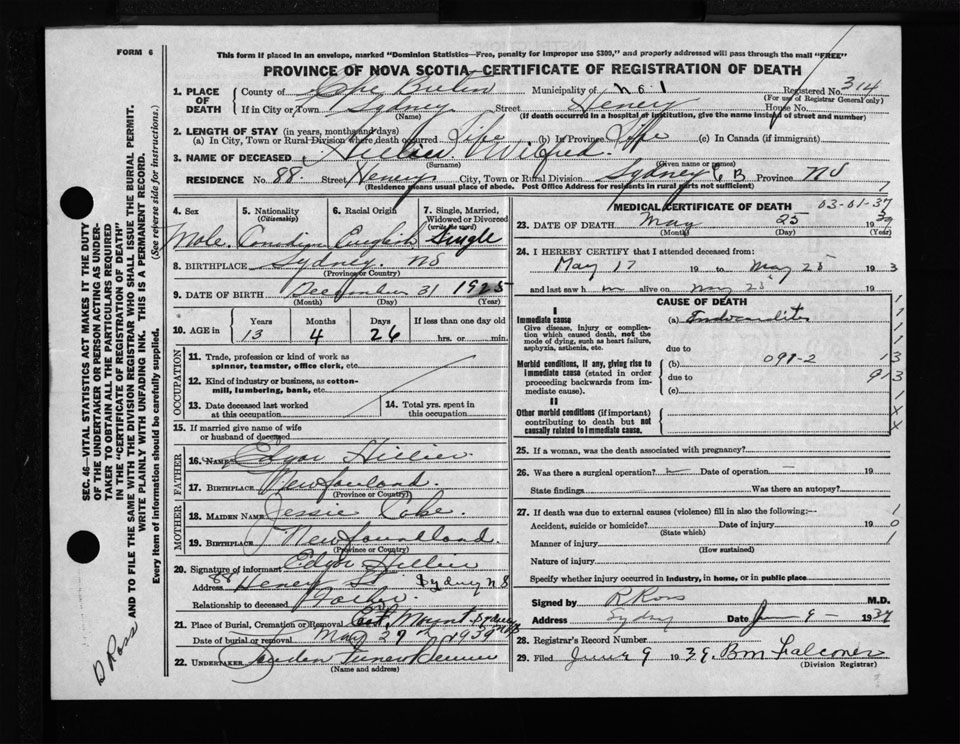 FORM 6
This form if placed in an envelope, marked "Dominion Statistics—Free, penalty for improper use $300," and properly addressed will pass through the mail "FREE"
PROVINCE OF NOVA SCOTIA—CERTIFICATE OF REGISTRATION OF DEATH
1. PLACE OF DEATH
County of Cape Breton Municipality of No 1 Registered No. 314
(For use of Registrar General only)
If in City or Town Sydney Street Henery House No.
(Name) (If death occurred in a hospital or institution, give the name instead of street and number)
2. LENGTH OF STAY (in years, months and days)
(a) In City, Town or Rural Division where death occurred Life (b) In Province Life (c) In Canada (if immigrant)
3. NAME OF DECEASED Hillier Wilfred
(Surname) (Given name or names)
RESIDENCE No. 88 Street Henery City, Town or Rural Division Sydney C B Province NS
(Residence means usual place of abode. Post Office Address for residents in rural parts not sufficient)
4. Sex
Male
5. Nationality (Citizenship)
Canadian
6. Racial Origin
English
7. Single, Married, Widowed or Divorced (write the word)
Single
8. BIRTHPLACE Sydney. NS
(Province or Country)
9. DATE OF BIRTH December 31 1925
(Month) (Day) (Year)
10. AGE in
Years Months Days If less than one day old
13 4 26 hrs. or min.
OCCUPATION
11. Trade, profession or kind of work as spinner, teamster, office clerk, etc.
12. Kind of industry or business, as cotton-mill, lumbering, bank, etc.
13. Date deceased last worked at this occupation
14. Total yrs. spent in this occupation
15. If married give name of wife or husband of deceased
FATHER
16. NAME Edgar Hillier
17. BIRTHPLACE Newfoundland.
(Province or Country)
MOTHER
18. MAIDEN NAME Jessie
19. BIRTHPLACE Newfoundland.
(Province or Country)
20. Signature of informant Edgar Hillier
Address 88 Henery St Sydney N S
Relationship to deceased Father
21. Place of Burial, Cremation or Removal Mount
Date of burial or removal May 27 1939
22. UNDERTAKER
(Name and address)
MEDICAL CERTIFICATE OF DEATH 03-01-37
23. DATE OF DEATH May 25 39
(Month) (Day) (Year)
24. I HEREBY CERTIFY that I attended deceased from:
May 17 19 to May 25 193
and last saw h im alive on May 25 193
CAUSE OF DEATH
I
Immediate cause
Give disease, injury or complication which caused death, not the mode of dying, such as heart failure, asphyxia, asthenia, etc.
(a) Endocarditis
due to
Morbid conditions, if any, giving rise to immediate cause (stated in order proceeding backwards from immediate cause).
(b) 091-2
due to
(c)
II
Other morbid conditions (if important) contributing to death but not causally related to immediate cause.
25. If a woman, was the death associated with pregnancy?
26. Was there a surgical operation? Date of operation 19
State findings Was there an autopsy?
27. If death was due to external causes (violence) fill in also the following:—
Accident, suicide or homicide? Date of injury 19
(State which)
Manner of injury
(How sustained)
Nature of injury
Specify whether injury occurred in industry, in home, or in public place
Signed by R Ross M.D.
Address Sydney Date 9 1939
28. Registrar's Record Number
29. Filed June 9 1939. B M Falconer
(Division Registrar)
SEC. 46—VITAL STATISTICS ACT MAKES IT THE DUTY OF THE UNDERTAKER OR PERSON ACTING AS UNDERTAKER TO OBTAIN ALL THE PARTICULARS REQUIRED IN THE "CERTIFICATE OF REGISTRATION OF DEATH" AND TO FILE THE SAME WITH THE DIVISION REGISTRAR WHO SHALL ISSUE THE BURIAL PERMIT.
WRITE PLAINLY WITH UNFADING INK. THIS IS A PERMANENT RECORD.
Every item of information should be carefully supplied. (See reverse side for instructions.)
D Ross